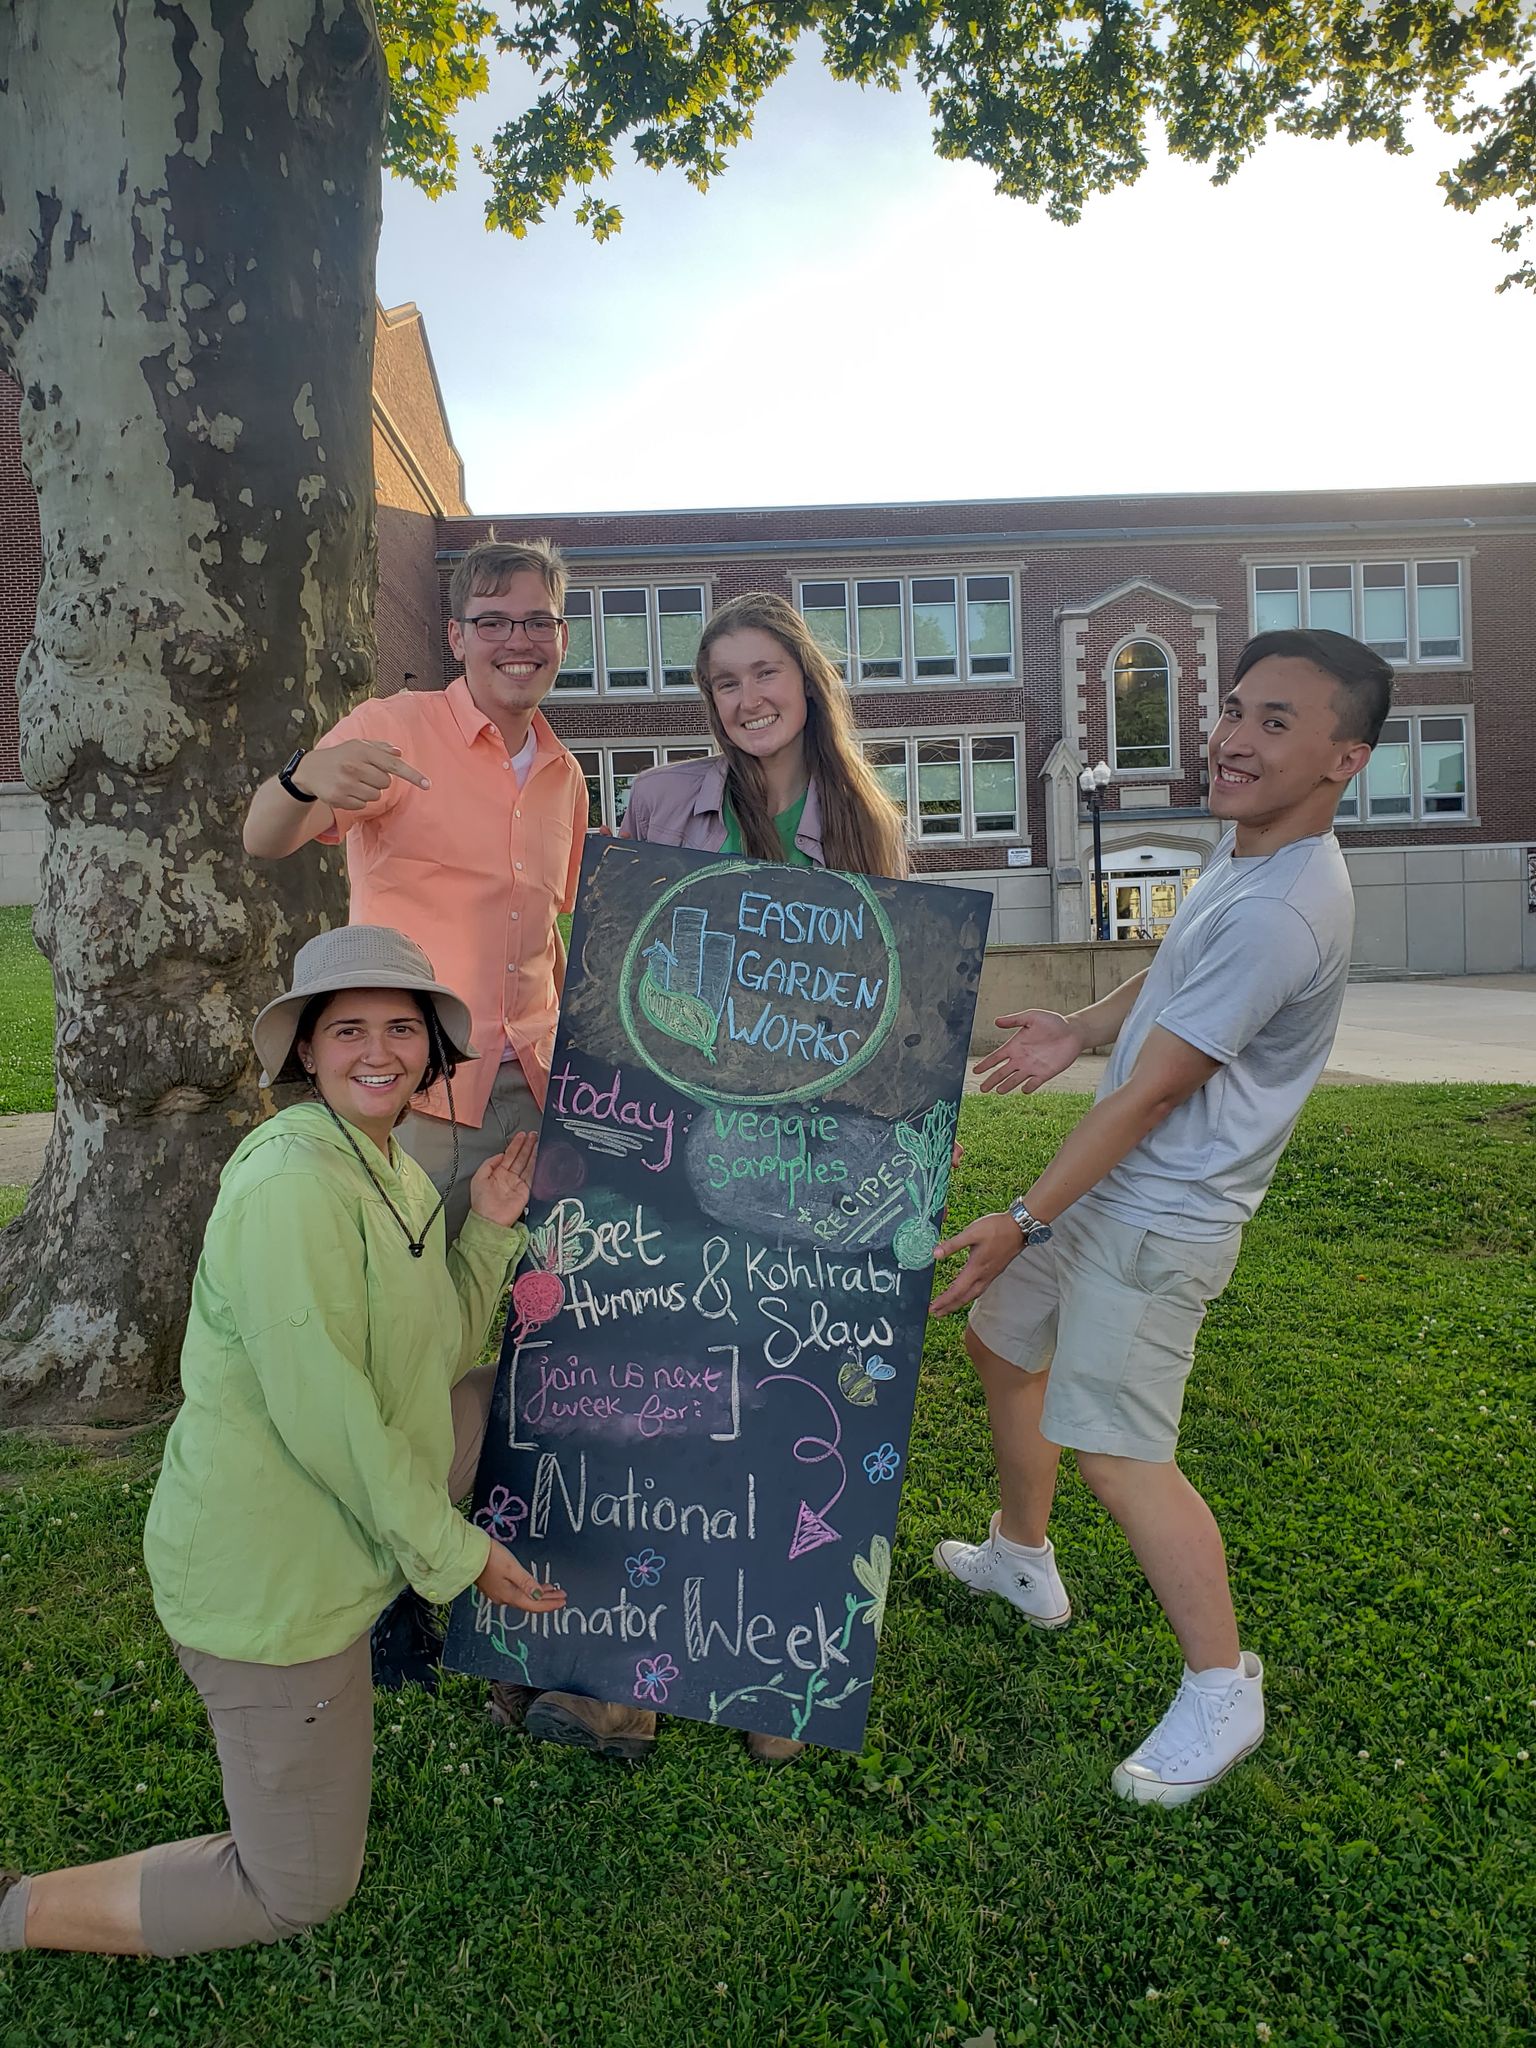 EASTON
GARDEN
WORKS
today: veggie
samples
* RECIPES
Beet
Hummus & Kohlrabi
Slaw
[join us next
week for:]
National
Pollinator Week